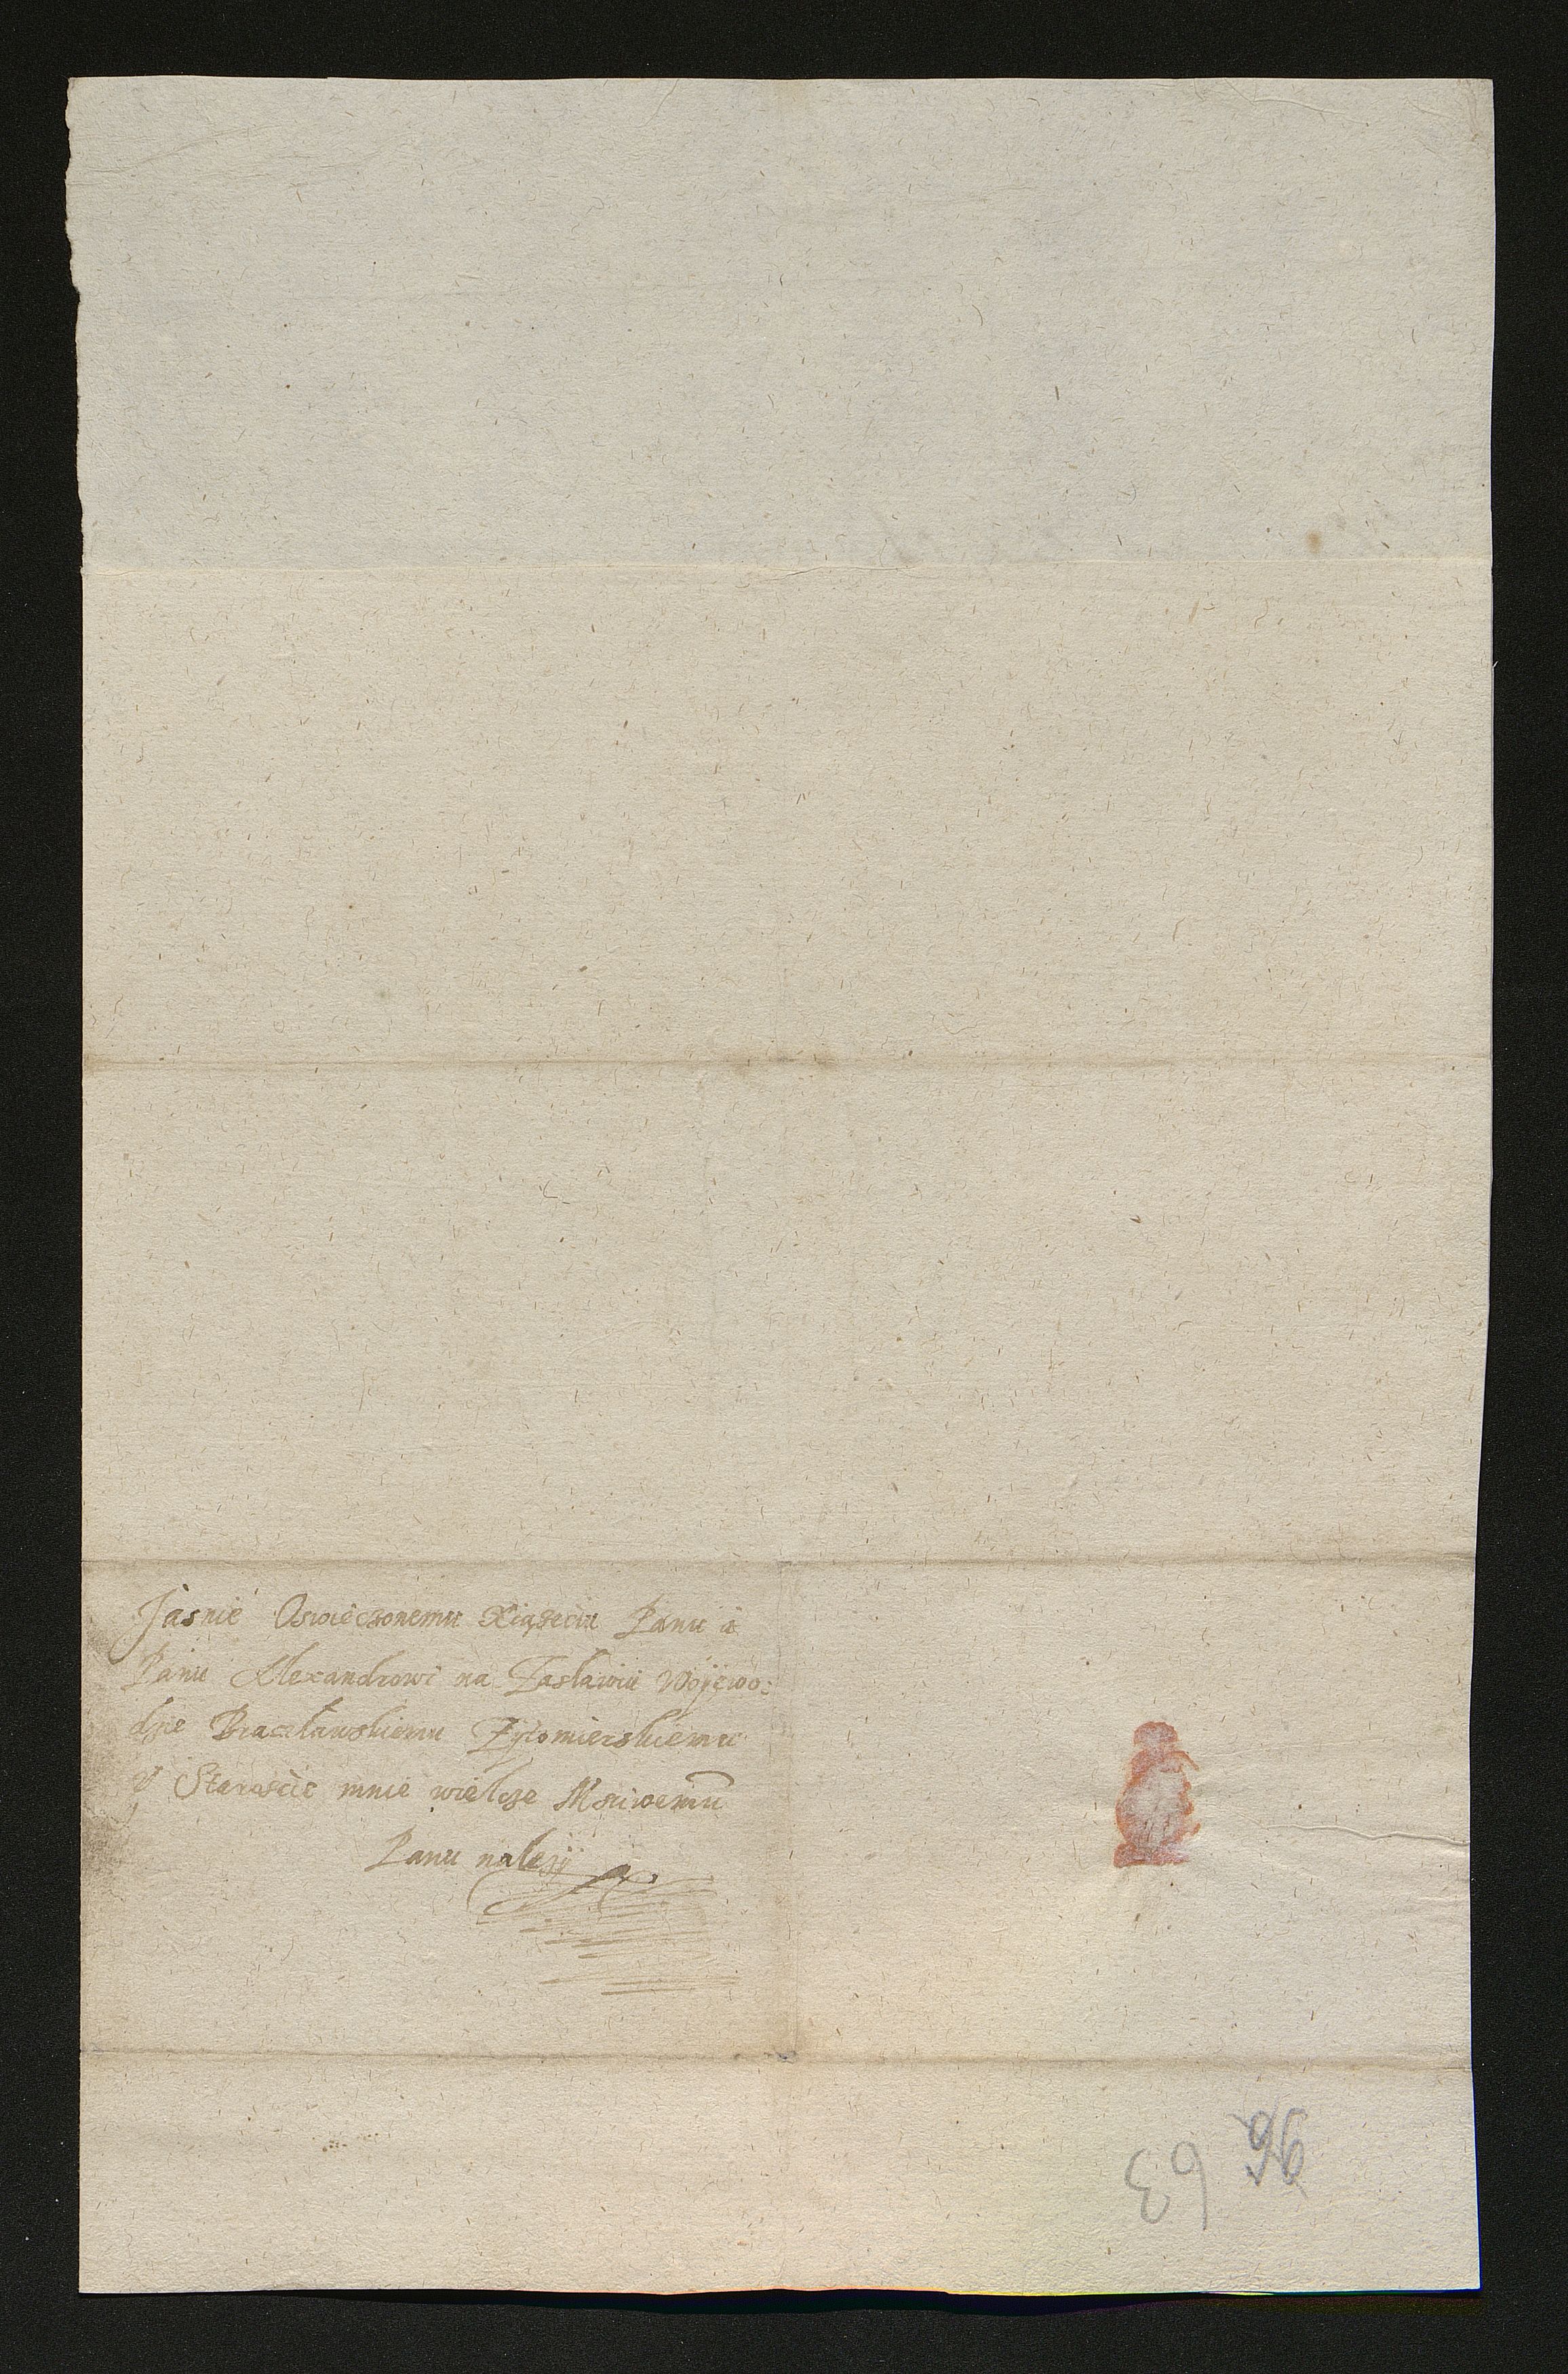 Jasnie Oswieczonemu Xiążęciu Panu á
Panu Alexandrowi na Zasławiu Woiewo:
dzie Bracławskiemu Zytomierskiemu
y Staroscie mnie wielcze Msciwemu
Panu należy
63 96